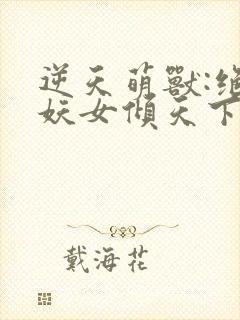 逆天萌獸:絕
妖女傾天下
戴海花